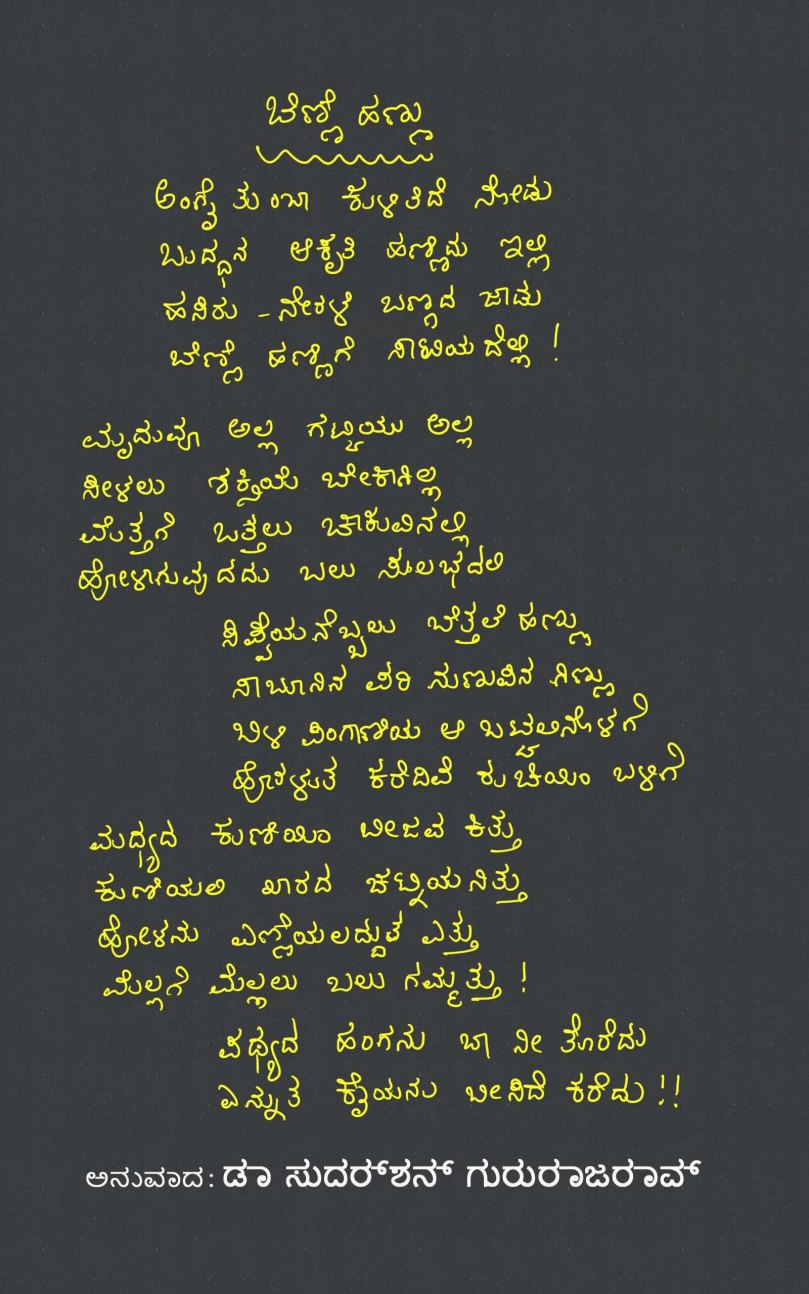 ಬೆಣ್ಣೆ ಹಣ್ಣು
ಅಂಗೈ ತುಂಬಾ ಕುಳಿತಿದೆ ನೋಡು
ಬುದ್ಧನ ಆಕೃತಿ ಹಣ್ಣಿದು ಇಲ್ಲಿ
ಹಸಿರು - ನೇರಳೆ ಬಣ್ಣದ ಜಾಡು
ಬೆಣ್ಣೆ ಹಣ್ಣಿಗೆ ಸಾಟಿಯದೆಲ್ಲಿ !
ಮೃದುವೂ ಅಲ್ಲ ಗಟ್ಟಿಯು ಅಲ್ಲ
ಸೀಳಲು ಶಕ್ತಿಯೆ ಬೇಕಾಗಿಲ್ಲ
ಮೆತ್ತಗೆ ಒತ್ತಲು ಚಾಕುವಿನಲ್ಲಿ
ಹೋಳಾಗುವುದದು ಬಲು ಸುಲಭದಲಿ
ಸಿಪ್ಪೆಯನೆಬ್ಬಲು ಬೆತ್ತಲೆ ಹಣ್ಣು
ಸಾಬೂನಿನ ಪರಿ ನುಣುಪಿನ ಗಿಣ್ಣು
ಬಿಳಿ ಪಿಂಗಾಣಿಯ ಆ ಬಟ್ಟಲಿನೊಳಗೆ
ಹೊಳೆಳುತ ಕರೆದಿವೆ ರುಚಿಯಿಂ ಬಳಿಗೆ
ಮಧ್ಯದ ಕುಣಿಯಿಂ ಬೀಜವ ಕಿತ್ತು
ಕುಣಿಯಲಿ ಖಾರದ ಚಟ್ನಿಯನಿತ್ತು
ಹೋಳನು ಎಣ್ಣೆಯಲದ್ದುತ ಎತ್ತು
ಮೆಲ್ಲಗೆ ಮೆಲ್ಲಲು ಬಲು ಗಮ್ಮತ್ತು !
ಪಥ್ಯದ ಹಂಗನು ಬಾ ನೀ ತೊರೆದು
ಎನ್ನುತ ಕೈಯನು ಬೀಸಿದೆ ಕರೆದು !!
ಅನುವಾದ: ಡಾ ಸುದರ್ಶನ್ ಗುರುರಾಜರಾವ್